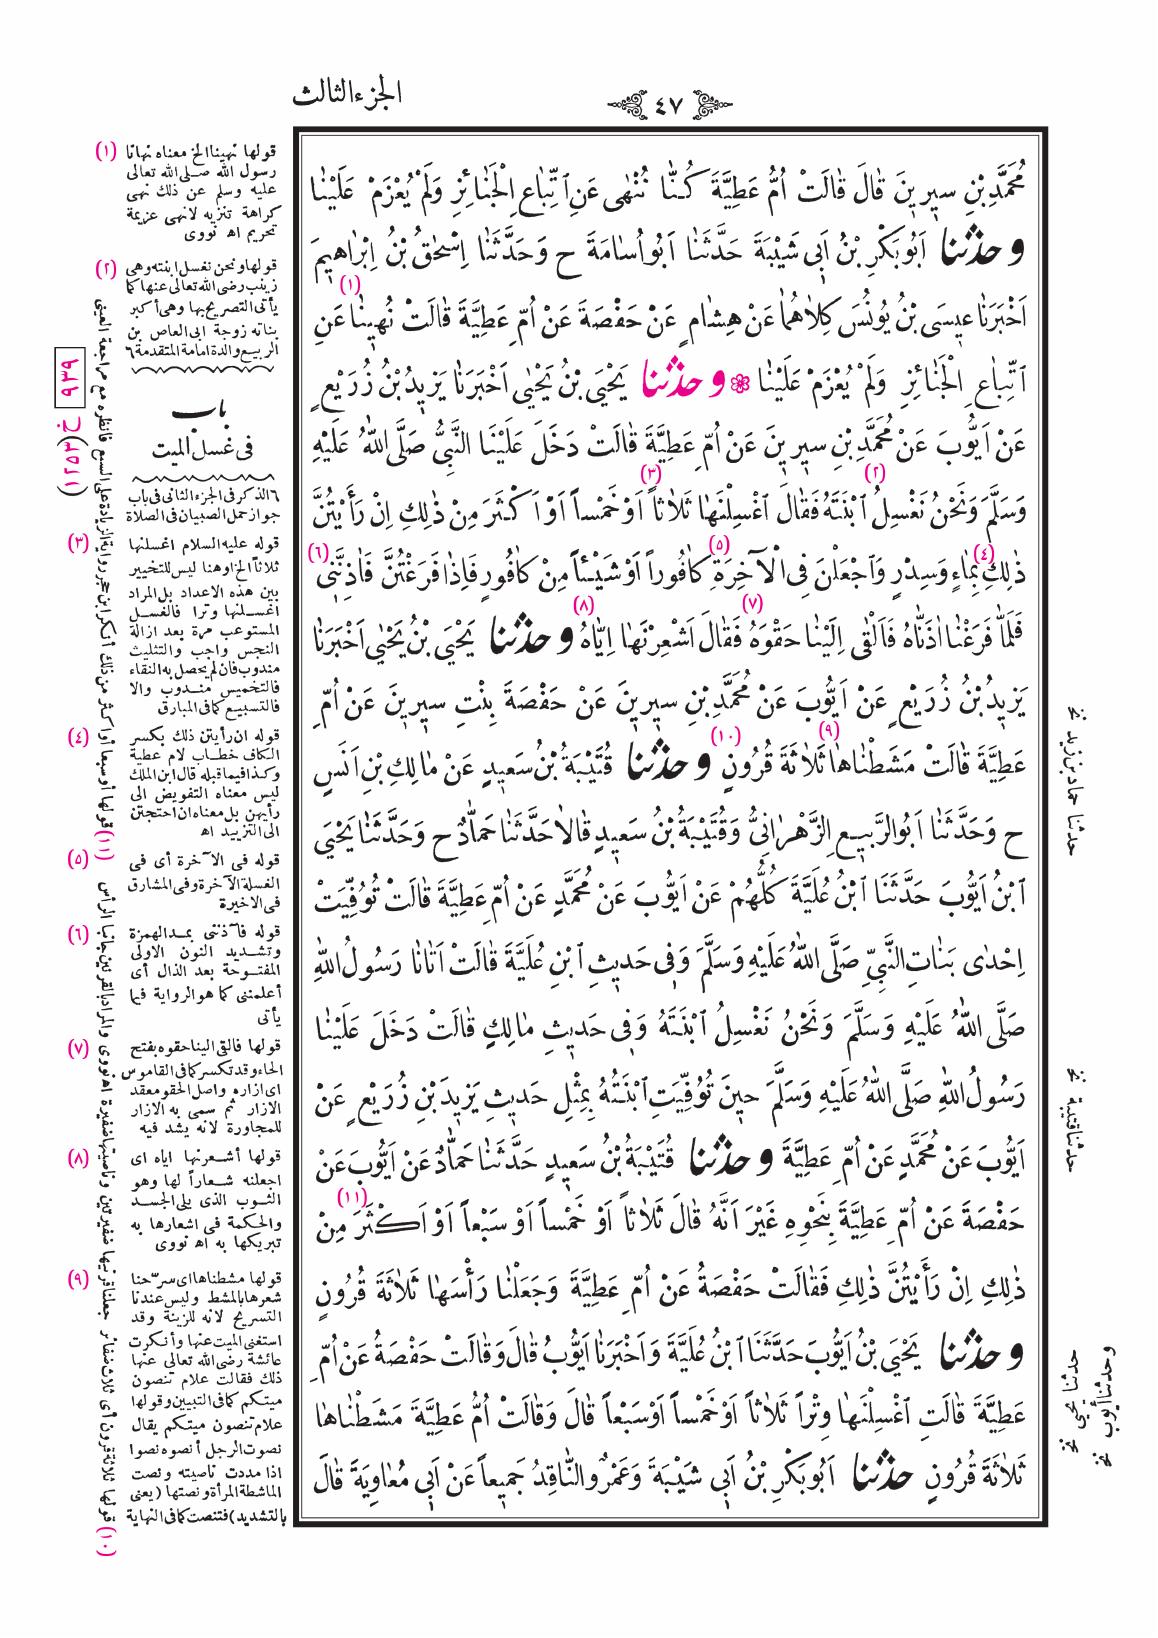 الجزء الثالث
٤٧
مُحَمَّدِ بْنِ سِيرِينَ قَالَ قَالَتْ اُمُّ عَطِيَّةَ كُنَّا نُنْهٰى عَنِ اتِّبَاعِ الْجَنَائِزِ وَلَمْ يُعْزَمْ عَلَيْنَا
و حَدَّثَنَا اَبُو بَكْرِ بْنُ اَبِى شَيْبَةَ حَدَّثَنَا اَبُو اُسَامَةَ ح وَحَدَّثَنَا اِسْحٰقُ بْنُ اِبْرَاهِيمَ
اَخْبَرَنَا عِيسَى بْنُ يُونُسَ كِلَاهُمَا عَنْ هِشَامٍ عَنْ حَفْصَةَ عَنْ اُمِّ عَطِيَّةَ قَالَتْ نُهِينَا (١) عَنِ
اتِّبَاعِ الْجَنَائِزِ وَلَمْ يُعْزَمْ عَلَيْنَا ❁ و حَدَّثَنَا يَحْيَى بْنُ يَحْيٰى اَخْبَرَنَا يَزِيدُ بْنُ زُرَيْعٍ
عَنْ اَيُّوبَ عَنْ مُحَمَّدِ بْنِ سِيرِينَ عَنْ اُمِّ عَطِيَّةَ قَالَتْ دَخَلَ عَلَيْنَا النَّبِىُّ صَلَّى اللّٰهُ عَلَيْهِ
وَسَلَّمَ وَنَحْنُ نَغْسِلُ (٢) ابْنَتَهُ فَقَالَ اغْسِلْنَهَا ثَلَاثاً (٣) اَوْ خَمْساً اَوْ اَكْثَرَ مِنْ ذٰلِكِ اِنْ رَأَيْتُنَّ
ذٰلِكِ (٤) بِمَاءٍ وَسِدْرٍ وَاجْعَلْنَ فِى الْآخِرَةِ (٥) كَافُوراً اَوْ شَيْئاً مِنْ كَافُورٍ فَاِذَا فَرَغْتُنَّ فَآذِنَّنِى (٦)
فَلَمَّا فَرَغْنَا اٰذَنَّاهُ فَاَلْقٰى اِلَيْنَا حَقْوَهُ (٧) فَقَالَ اَشْعِرْنَهَا اِيَّاهُ (٨) و حَدَّثَنَا يَحْيَى بْنُ يَحْيٰى اَخْبَرَنَا
يَزِيدُ بْنُ زُرَيْعٍ عَنْ اَيُّوبَ عَنْ مُحَمَّدِ بْنِ سِيرِينَ عَنْ حَفْصَةَ بِنْتِ سِيرِينَ عَنْ اُمِّ
عَطِيَّةَ قَالَتْ مَشَطْنَاهَا (٩) ثَلَاثَةَ قُرُونٍ (١٠) و حَدَّثَنَا قُتَيْبَةُ بْنُ سَعِيدٍ عَنْ مَالِكِ بْنِ اَنَسٍ
ح وَحَدَّثَنَا اَبُو الرَّبِيعِ الزَّهْرَانِىُّ وَقُتَيْبَةُ بْنُ سَعِيدٍ قَالَا حَدَّثَنَا حَمَّادٌ ح وَحَدَّثَنَا يَحْيَى
ابْنُ اَيُّوبَ حَدَّثَنَا ابْنُ عُلَيَّةَ كُلُّهُمْ عَنْ اَيُّوبَ عَنْ مُحَمَّدٍ عَنْ اُمِّ عَطِيَّةَ قَالَتْ تُوُفِّيَتْ
اِحْدٰى بَنَاتِ النَّبِىِّ صَلَّى اللّٰهُ عَلَيْهِ وَسَلَّمَ وَفِى حَدِيثِ ابْنِ عُلَيَّةَ قَالَتْ اَتَانَا رَسُولُ اللّٰهِ
صَلَّى اللّٰهُ عَلَيْهِ وَسَلَّمَ وَنَحْنُ نَغْسِلُ ابْنَتَهُ وَفِى حَدِيثِ مَالِكٍ قَالَتْ دَخَلَ عَلَيْنَا
رَسُولُ اللّٰهِ صَلَّى اللّٰهُ عَلَيْهِ وَسَلَّمَ حِينَ تُوُفِّيَتِ ابْنَتُهُ بِمِثْلِ حَدِيثِ يَزِيدَ بْنِ زُرَيْعٍ عَنْ
اَيُّوبَ عَنْ مُحَمَّدٍ عَنْ اُمِّ عَطِيَّةَ و حَدَّثَنَا قُتَيْبَةُ بْنُ سَعِيدٍ حَدَّثَنَا حَمَّادٌ عَنْ اَيُّوبَ عَنْ
حَفْصَةَ عَنْ اُمِّ عَطِيَّةَ بِنَحْوِهِ غَيْرَ اَنَّهُ قَالَ ثَلَاثاً اَوْ خَمْساً اَوْ سَبْعاً (١١) اَوْ اَكْثَرَ مِنْ
ذٰلِكِ اِنْ رَأَيْتُنَّ ذٰلِكِ فَقَالَتْ حَفْصَةُ عَنْ اُمِّ عَطِيَّةَ وَجَعَلْنَا رَأْسَهَا ثَلَاثَةَ قُرُونٍ
و حَدَّثَنَا يَحْيَى بْنُ اَيُّوبَ حَدَّثَنَا ابْنُ عُلَيَّةَ وَاَخْبَرَنَا اَيُّوبُ قَالَ وَقَالَتْ حَفْصَةُ عَنْ اُمِّ
عَطِيَّةَ قَالَتِ اغْسِلْنَهَا وِتْراً ثَلَاثاً اَوْ خَمْساً اَوْ سَبْعاً قَالَ وَقَالَتْ اُمُّ عَطِيَّةَ مَشَطْنَاهَا
ثَلَاثَةَ قُرُونٍ حَدَّثَنَا اَبُو بَكْرِ بْنُ اَبِى شَيْبَةَ وَعَمْرٌو النَّاقِدُ جَمِيعاً عَنْ اَبِى مُعَاوِيَةَ قَالَ
(١) قولها نهينا الخ معناه نهانا
رسول الله صلى الله تعالى
عليه وسلم عن ذلك نهى
كراهة تنزيه لا نهى عزيمة
تحريم اه نووى
(٢) قولها ونحن نغسل ابنته وهى
زينب رضى الله تعالى عنها كما
يأتى التصريح بها وهى أكبر
بناته زوجة ابى العاص بن
الربيع والدة امامة المتقدمة ٦
باب
فى غسل الميت
٦ الذكر فى الجزء الثانى فى باب
جواز حمل الصبيان فى الصلاة
(٣) قوله عليه السلام اغسلنها
ثلاثاً الخ او هنا ليس للتخيير
بين هذه الاعداد بل المراد
اغسلنها وترا فالغسل
المستوعب مرة بعد ازالة
النجس واجب والتثليث
مندوب فان لم يحصل به النقاء
فالتخميس مندوب والا
فالتسبيع كما فى المبارق
(٤) قوله ان رأيتن ذلك بكسر
الكاف خطاب لام عطية
وكذا فيما قبله قال ابن الملك
ليس معناه التفويض الى
رأيهن بل معناه ان احتجتن
الى التزييد اه
(٥) قوله فى الآخرة أى فى
الغسلة الآخرة وفى المشارق
فى الاخيرة
(٦) قوله فآذننى بمد الهمزة
وتشديد النون الاولى
المفتوحة بعد الذال أى
أعلمننى كما هو الرواية فيما
يأتى
(٧) قولها فالقى الينا حقوه بفتح
الحاء وقد تكسر كما فى القاموس
اى ازاره واصل الحقو معقد
الازار ثم سمى به الازار
للمجاورة لانه يشد فيه
(٨) قولها أشعرنها اياه اى
اجعلنه شعاراً لها وهو
الثوب الذى يلى الجسد
والحكمة فى اشعارها به
تبريكها به اه نووى
(٩) قولها مشطناها اى سرّحنا
شعرها بالمشط وليس عندنا
التسريح لانه للزينة وقد
استغنى الميت عنها وأنكرت
عائشة رضى الله تعالى عنها
ذلك فقالت علام تنصون
ميتكم كما فى التبيين وقولها
علام تنصون ميتكم يقال
نصوت الرجل أنصوه نصوا
اذا مددت ناصيته ونصت
الماشطة المرأة ونصتها (يعنى
بالتشديد) فتنصت كما فى النهاية
(١٠) قولها ثلاثة قرون أى ثلاث ضفائر جعلنا قرنيها ضفيرتين وناصيتها ضفيرة اه نووى والمراد بالقرنين جانبا الرأس
(١١) قولها أو سبعا أو اكثر من ذلك أنكر ابن حجر رواية الزيادة على السبع فانظره مع مراجعة العينى
٩٣٩
خ (١٢٥٣)
حدثنا حماد بن زيد نخ
حدثنا قتيبة نخ
حدثنا يحيى نخ
وحدثنا أيوب نخ